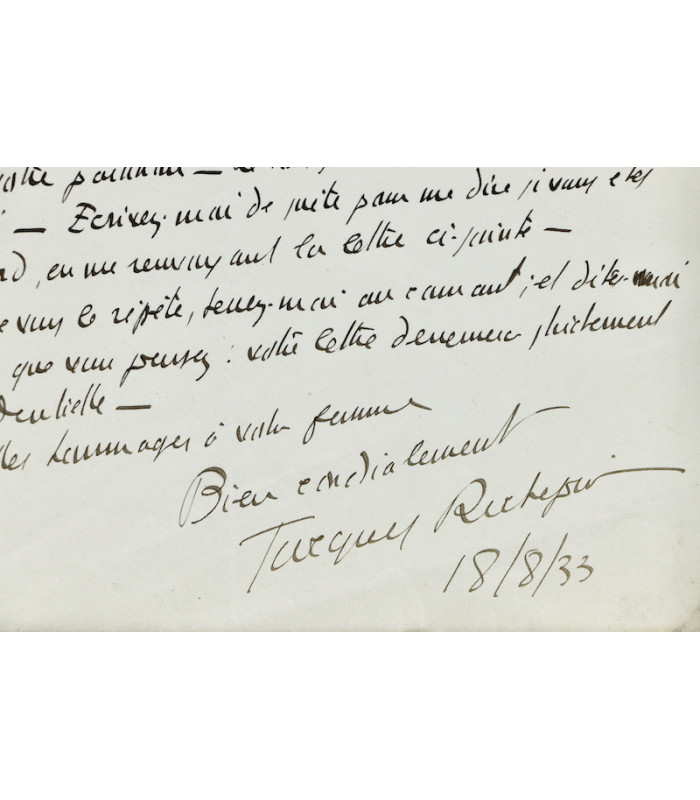 votre
— Ecrivez-moi de suite pour me dire si vous êtes
rd, en me renvoyant la lettre ci-jointe —
e vous le répète, tenez-moi au courant ; et dites-moi
que vous pensez : votre lettre demeurera strictement
dentielle —
Mes hommages à votre femme
Bien cordialement
Jacques Richepin
18/8/33